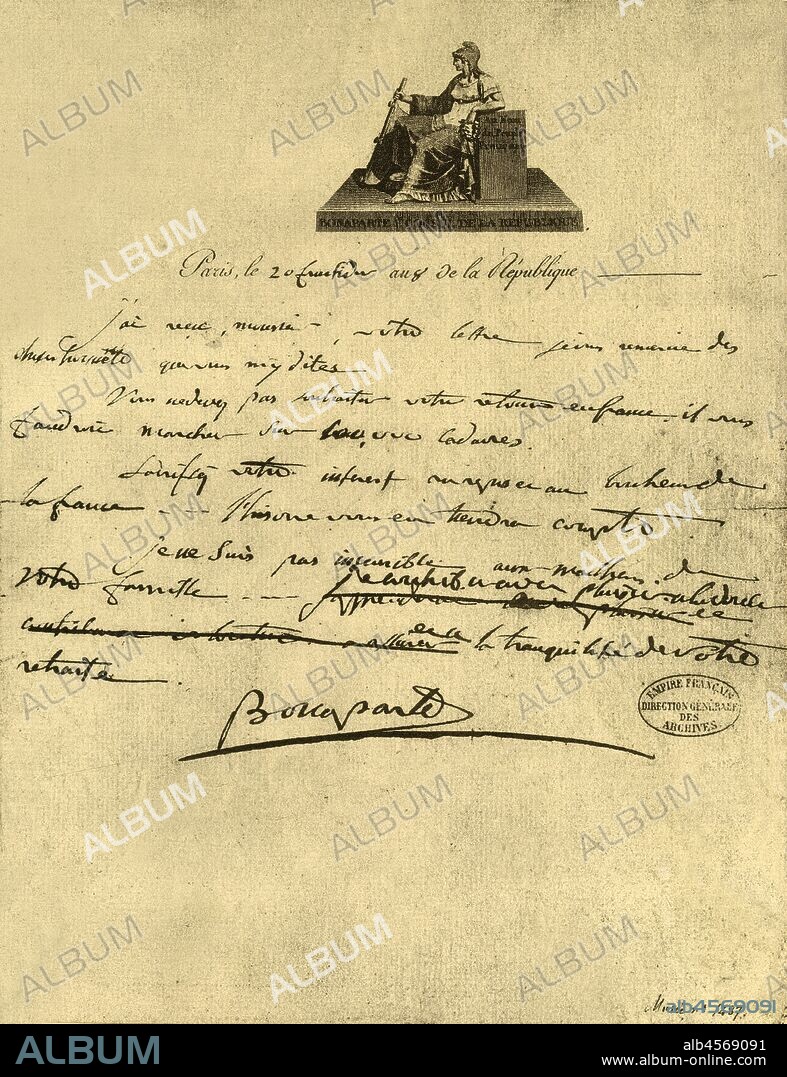 Au Nom
du Peuple
Français
BONAPARTE 1er CONSUL DE LA RÉPUBLIQUE.
Paris, le 20 fructidor an 8 de la République
j'ai reçu, monsieur, votre lettre je vous remercie des
choses honnêtes que vous m'y dites
Vous ne devez pas souhaiter votre retour en france. il vous
faudroit marcher sur cadavres.
Sacrifiez votre interest au repos et au bonheur de
la france - - - l'histoire vous en tiendra compte
je ne suis pas insensible aux malheurs de
votre famille - - - -
à la tranquilité de votre
retraite.
Bonaparte
EMPIRE FRANÇAIS
DIRECTION GÉNÉRALE
DES
ARCHIVES
ALBUM
alb4569091
ALBUM
alb4569091
www.album-online.com